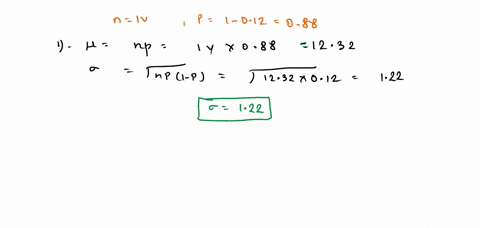 n = 14 , P = 1 - 0.12 = 0.88
1). μ = np = 14 x 0.88 = 12.32
σ = √nP(1-P) = √12.32 x 0.12 = 1.22
σ = 1.22